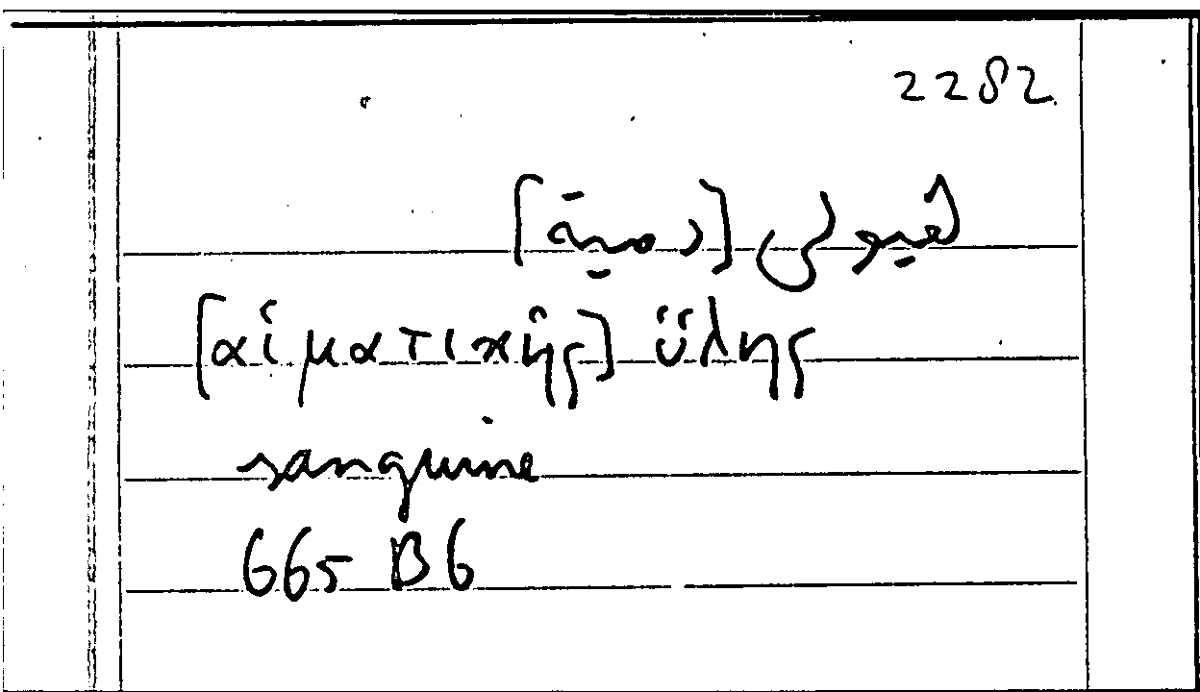 2282
لهيولى [دمية]
[αἱματικῆς] ὕλης
sanguine
665 B6